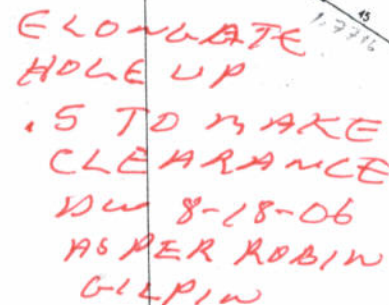 ELONGATE
HOLE UP
.5 TO MAKE
CLEARANCE
DW 8-18-06
AS PER ROBIN
GILPIN
45